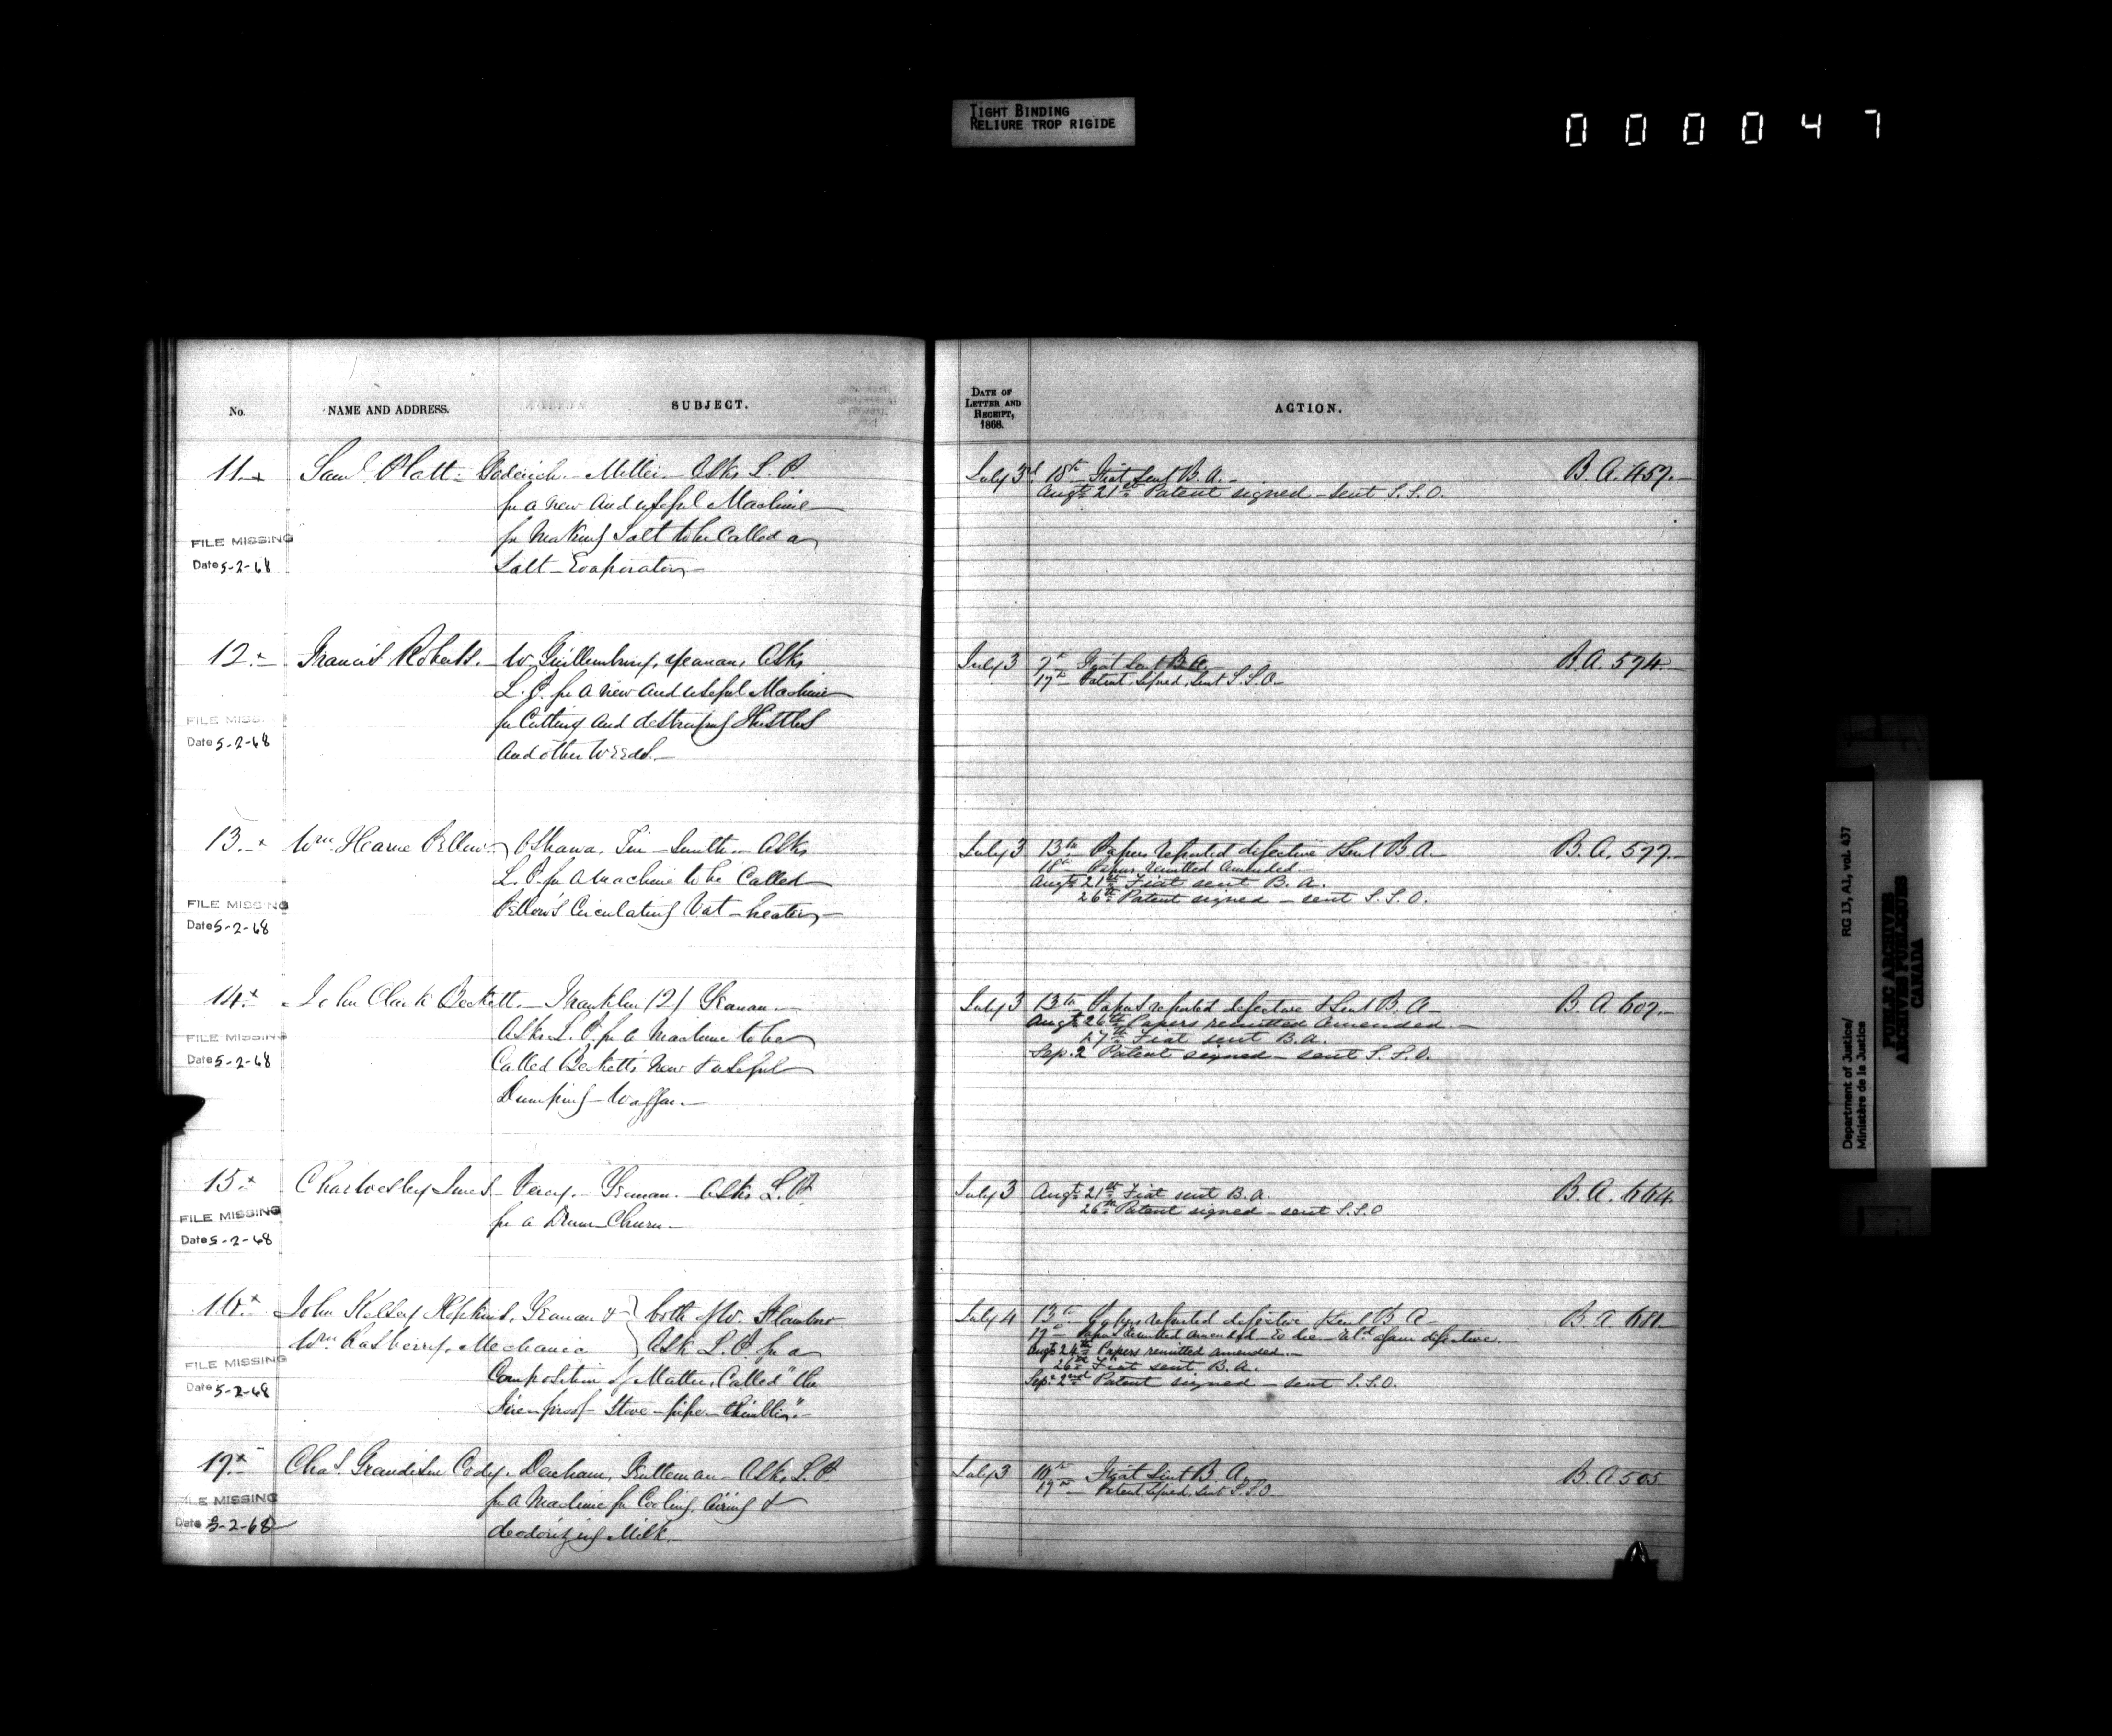 TIGHT BINDING
RELIURE TROP RIGIDE
000047
No.
NAME AND ADDRESS.
SUBJECT.
DATE OF
LETTER AND
RECEIPT,
1868.
ACTION.
11. Saml Platt - Goderich - Miller - Asks L. P.
for a new and useful Machine
for making Salt to be Called a
Salt - Evaporator
FILE MISSING
Date 5-2-68
July 3d 18th Fiat sent B. A.
Augt 21st Patent signed - sent S. S. O.
B. A. 457.
12. Francis Roberts. - W Guillembury, yeoman, Asks
L. P. for a new and useful Machine
for Cutting and destroying Thistles
and other Weeds.
FILE MISSING
Date 5-2-68
July 3 7th Fiat sent B. A.
17th Patent signed, sent S. S. O.
B. A. 574.
13. Wm Hearne Pellow Oshawa. Tin - Smith. Asks
L. P. for a Machine to be Called
Pellow's Circulating Vat - heater
FILE MISSING
Date 5-2-68
July 3 13th Papers reported defective & sent B. A.
18th Papers remitted amended.
Augt 21st Fiat sent B. A.
26th Patent signed - sent S. S. O.
B. A. 577.
14. John Clark Beckett. - Franklin (2) Yeoman
Asks L. P. for a Machine to be
Called Becketts New & useful
Dumping - Waggon.
FILE MISSING
Date 5-2-68
July 3 13th Papers reported defective & Sent B. A.
Augt 26th Papers remitted amended.
27th Fiat sent B. A.
Sep. 2 Patent signed - sent S. S. O.
B. A. 607.
15. Chas Wesley - Percy. - Yeoman. - Asks L. P.
for a Drum - Churn
FILE MISSING
Date 5-2-68
July 3 Augt 21st Fiat sent B. A.
26th Patent signed - sent S. S. O
B. A. 664.
16. John Kelsey Hopkins, Yeoman & } both of W. Flamboro
Wm Rasberry, Mechanic } Ask L. P. for a
Composition of Matter, Called "the
Fire-proof Stove-pipe-thimble".
FILE MISSING
Date 5-2-68
July 4 13th Papers reported defective & sent B. A.
17th Papers remitted amended. - Eo die. - again defective.
Augt 24th Papers remitted amended.
26th Fiat sent B. A.
Sep. 2nd Patent signed - sent S. S. O.
B. A. 611.
17. Chas. Grandison Cody. Dereham, Gentleman - Asks L. P.
for a Machine for Cooling, Airing &
deodorizing Milk.
FILE MISSING
Date 5-2-68
July 3 Fiat sent B. A.
17th Patent signed, sent S. S. O.
B. A. 505
Department of Justice/
Ministère de la Justice
RG 13, A1, vol. 437
PUBLIC ARCHIVES
ARCHIVES PUBLIQUES
CANADA